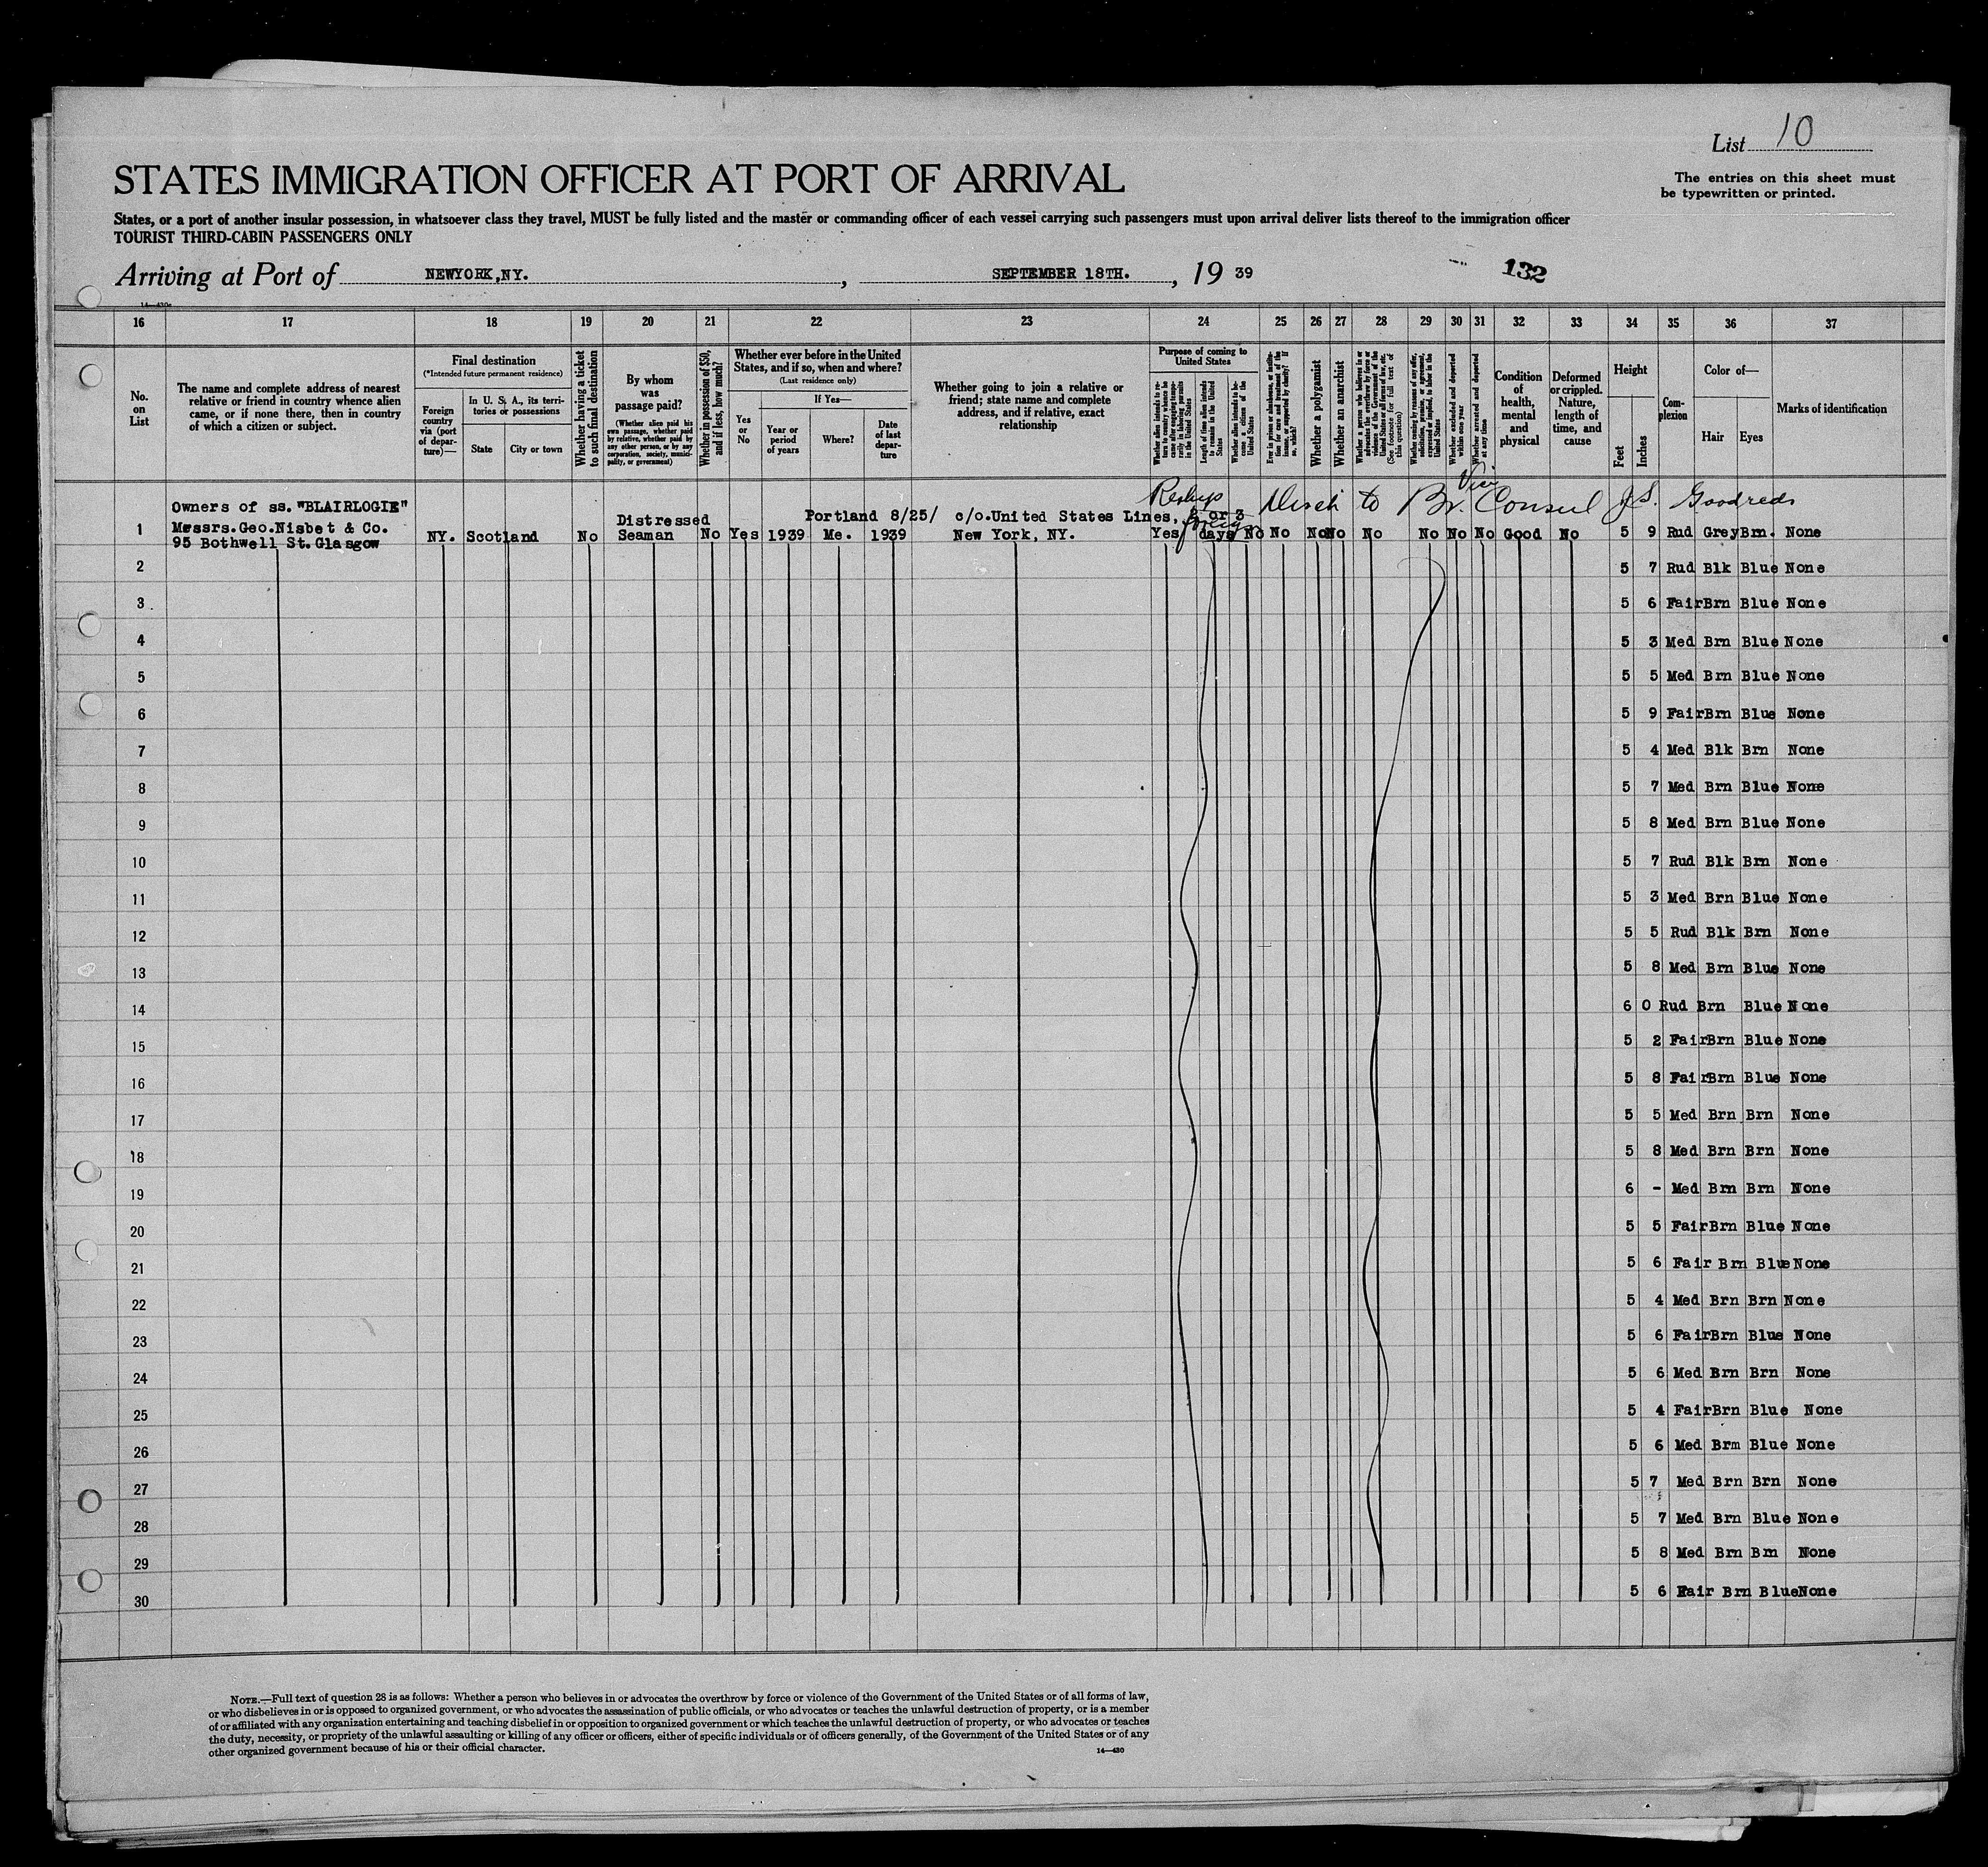 List 10
STATES IMMIGRATION OFFICER AT PORT OF ARRIVAL
The entries on this sheet must
be typewritten or printed.
States, or a port of another insular possession, in whatsoever class they travel, MUST be fully listed and the master or commanding officer of each vessel carrying such passengers must upon arrival deliver lists thereof to the immigration officer
TOURIST THIRD-CABIN PASSENGERS ONLY
Arriving at Port of NEWYORK,NY. , SEPTEMBER 18TH. , 19 39 132
16 17 18 19 20 21 22 23 24 25 26 27 28 29 30 31 32 33 34 35 36 37
No.
on
List
The name and complete address of nearest
relative or friend in country whence alien
came, or if none there, then in country
of which a citizen or subject.
Final destination
(*Intended future permanent residence)
Foreign
country
via (port
of depar-
ture)—
In U. S. A., its terri-
tories or possessions
State
City or town
Whether having a ticket
to such final destination
By whom
was
passage paid?
(Whether alien paid his
own passage, whether paid
by relative, whether paid by
any other person, or by any
corporation, society, munici-
pality, or government)
Whether in possession of $50,
and if less, how much?
Whether ever before in the United
States, and if so, when and where?
(Last residence only)
Yes
or
No
If Yes—
Year or
period
of years
Where?
Date
of last
depar-
ture
Whether going to join a relative or
friend; state name and complete
address, and if relative, exact
relationship
Purpose of coming to
United States
Whether alien intends to re-
turn to country whence he
came after engaging tempo-
rarily in laboring pursuits
in the United States
Length of time alien intends
to remain in the United
States
Whether alien intends to be-
come a citizen of the
United States
Ever in prison or almshouse, or institu-
tion for care and treatment of the
insane, or supported by charity? If
so, which?
Whether a polygamist
Whether an anarchist
Whether a person who believes in or
advocates the overthrow by force or
violence of the Government of the
United States or all forms of law, etc.
(See footnote for full text of
this question)
Whether coming by reason of any offer,
solicitation, promise, or agreement,
expressed or implied, to labor in the
United States
Whether excluded and deported
within one year
Whether arrested and deported
at any time
Condition
of
health,
mental
and
physical
Deformed
or crippled.
Nature,
length of
time, and
cause
Height
Feet
Inches
Com-
plexion
Color of—
Hair
Eyes
Marks of identification
Reship foreign Disch to Br. Vice Consul J.S. Goodreds
Owners of ss. "BLAIRLOGIE"
Messrs.Geo.Nisbet & Co.
95 Bothwell St.Glasgow
Distressed Portland 8/25/ c/o.United States Lines, 2 or 3
1 NY. Scotland No Seaman No Yes 1939 Me. 1939 New York, NY. Yes days No No No No No No No No Good No 5 9 Rud Grey Brn. None
2 5 7 Rud Blk Blue None
3 5 6 Fair Brn Blue None
4 5 3 Med Brn Blue None
5 5 5 Med Brn Blue None
6 5 9 Fair Brn Blue None
7 5 4 Med Blk Brn None
8 5 7 Med Brn Blue None
9 5 8 Med Brn Blue None
10 5 7 Rud Blk Brn None
11 5 3 Med Brn Blue None
12 5 5 Rud Blk Brn None
13 5 8 Med Brn Blue None
14 6 0 Rud Brn Blue None
15 5 2 Fair Brn Blue None
16 5 8 Fair Brn Blue None
17 5 5 Med Brn Brn None
18 5 8 Med Brn Brn None
19 6 - Med Brn Brn None
20 5 5 Fair Brn Blue None
21 5 6 Fair Brn Blue None
22 5 4 Med Brn Brn None
23 5 6 Fair Brn Blue None
24 5 6 Med Brn Brn None
25 5 4 Fair Brn Blue None
26 5 6 Med Brm Blue None
27 5 7 Med Brn Brn None
28 5 7 Med Brn Blue None
29 5 8 Med Brn Brn None
30 5 6 Fair Brn Blue None
NOTE.—Full text of question 28 is as follows: Whether a person who believes in or advocates the overthrow by force or violence of the Government of the United States or of all forms of law,
or who disbelieves in or is opposed to organized government, or who advocates the assassination of public officials, or who advocates or teaches the unlawful destruction of property, or is a member
of or affiliated with any organization entertaining and teaching disbelief in or opposition to organized government or which teaches the unlawful destruction of property, or who advocates or teaches
the duty, necessity, or propriety of the unlawful assaulting or killing of any officer or officers, either of specific individuals or of officers generally, of the Government of the United States or of any
other organized government because of his or their official character.
14—430